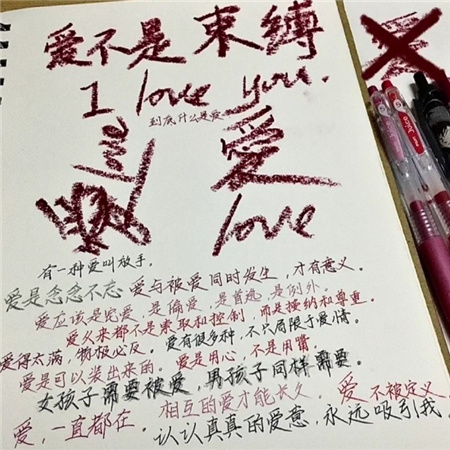 爱不是束缚
I love you.
到底什么是爱
love
爱
love
有一种爱叫放手。
爱是念念不忘 爱与被爱同时发生，才有意义。
爱应该是宠爱，是偏爱，是首选，是例外。
爱从来都不是索取和控制，而是接纳和尊重。
爱有很多种，不只局限于爱情。
爱得太满，物极必反。爱是用心，不是用嘴
爱是可以装出来的。
女孩子需要被爱，男孩子同样需要。
相互的爱才能长久。爱不被定义
爱，一直都在。认认真真的爱意，永远吸引我。